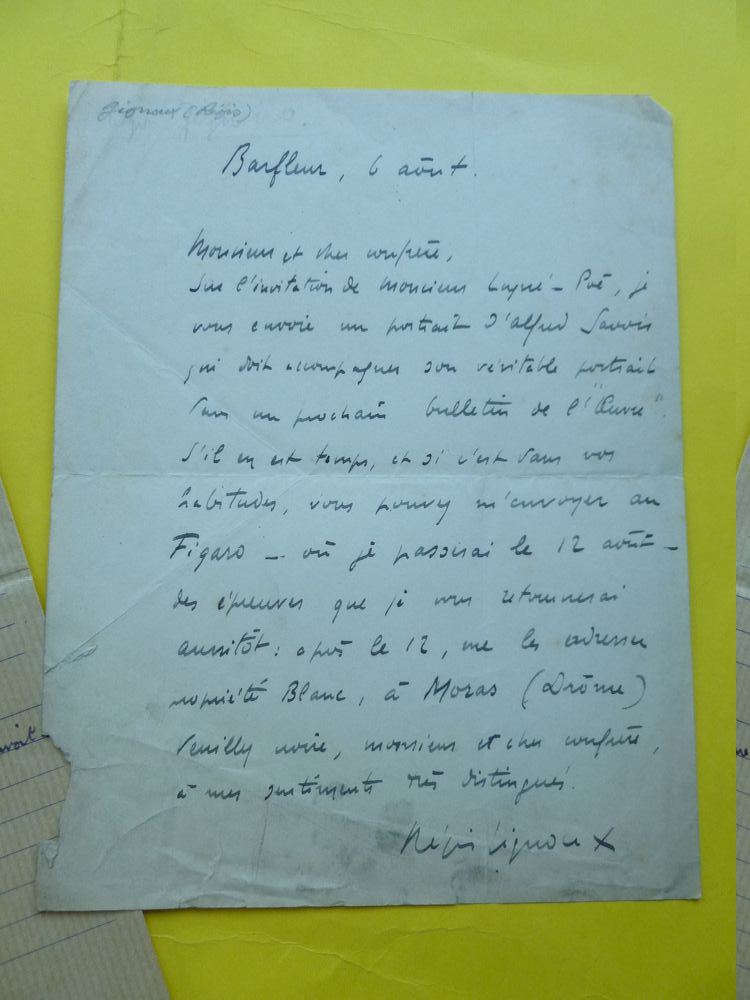 Gignoux (Régis)
Barfleur, 6 août.
Monsieur et cher confrère,
Sur l'invitation de Monsieur Lugné-Poë, je
vous envoie un portrait d'Alfred Savoir
qui doit accompagner son véritable portrait
dans un prochain bulletin de l'"Œuvre".
S'il en est temps, et si c'est dans vos
habitudes, vous pouvez m'envoyer au
Figaro — où je passerai le 12 août —
des épreuves que je vous retournerai
aussitôt: après le 12, me les adresser
propriété Blanc, à Moras (Drôme)
Veuillez croire, monsieur et cher confrère,
à mes sentiments très distingués.
Régis Gignoux